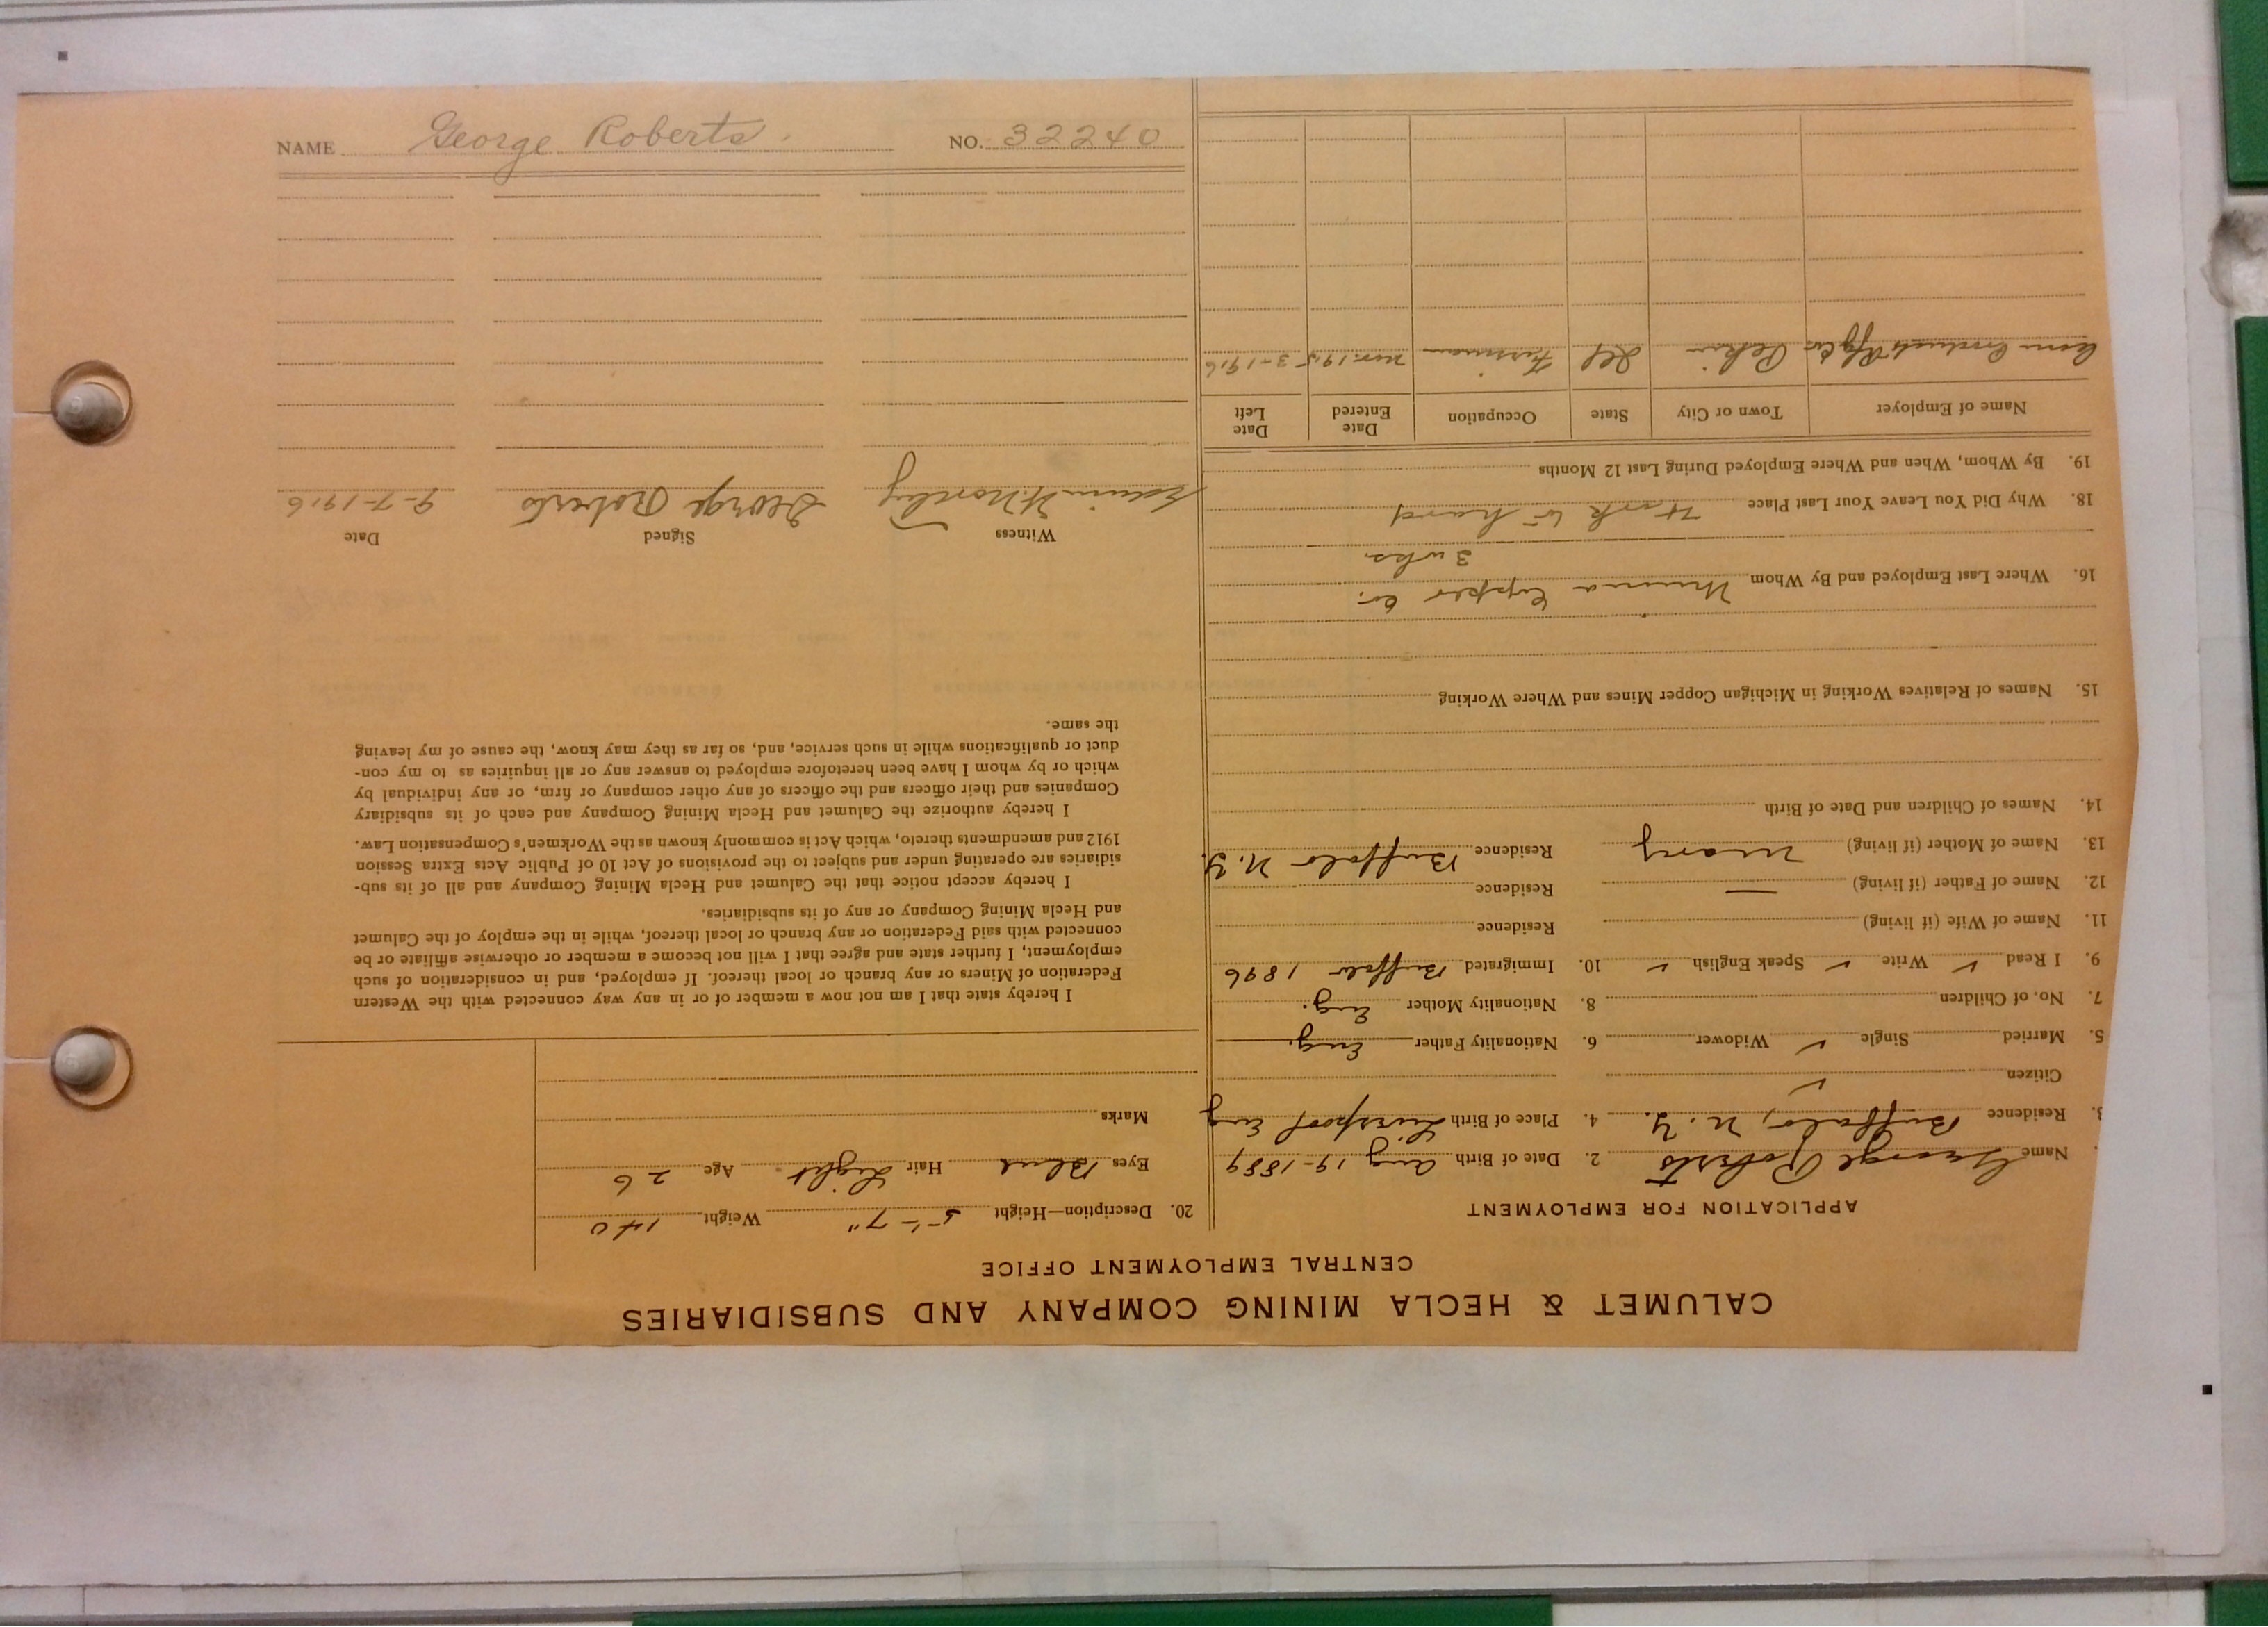 NAME George Roberts NO. 32240
CALUMET & HECLA MINING COMPANY AND SUBSIDIARIES
CENTRAL EMPLOYMENT OFFICE
APPLICATION FOR EMPLOYMENT
Name George Roberts 2. Date of Birth Aug 19-1889
3. Residence Buffalo, N.Y. 4. Place of Birth Liverpool Eng
Citizen ✓
5. Married Single ✓ Widower 6. Nationality Father Eng.
7. No. of Children 8. Nationality Mother Eng.
9. I Read ✓ Write ✓ Speak English ✓ 10. Immigrated Buffalo 1896
11. Name of Wife (if living) Residence
12. Name of Father (if living) — Residence
13. Name of Mother (if living) Mary Residence Buffalo N.Y.
14. Names of Children and Date of Birth
15. Names of Relatives Working in Michigan Copper Mines and Where Working
16. Where Last Employed and By Whom Copper Co.
3 wks.
18. Why Did You Leave Your Last Place Work to hard
19. By Whom, When and Where Employed During Last 12 Months
Name of Employer Town or City State Occupation Date Entered Date Left
Products Pekin Ill Fireman Nov. 1915 3-1916
20. Description—Height 5'-7" Weight 140
Eyes Blue Hair Light Age 26
Marks
I hereby state that I am not now a member of or in any way connected with the Western
Federation of Miners or any branch or local thereof. If employed, and in consideration of such
employment, I further state and agree that I will not become a member or otherwise affiliate or be
connected with said Federation or any branch or local thereof, while in the employ of the Calumet
and Hecla Mining Company or any of its subsidiaries.
I hereby accept notice that the Calumet and Hecla Mining Company and all of its sub-
sidiaries are operating under and subject to the provisions of Act 10 of Public Acts Extra Session
1912 and amendments thereto, which Act is commonly known as the Workmen's Compensation Law.
I hereby authorize the Calumet and Hecla Mining Company and each of its subsidiary
Companies and their officers and the officers of any other company or firm, or any individual by
which or by whom I have been heretofore employed to answer any or all inquiries as to my con-
duct or qualifications while in such service, and, so far as they may know, the cause of my leaving
the same.
Witness Signed Date
Edwin George Roberts 9-7-1916